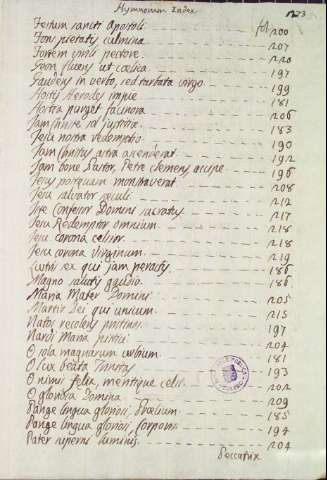 Hymnorum Index
173
Festum sancti Apostoli fol. 200
Fons pietatis culmina 207
Fortem virili pectore 220
Geon fluens ut coelica 197
Gaudens in verbo, sed turbata virgo 199
Hostis Herodes impie 181
Nostra purget facinora 206
Jam sinite 183
Jesu nostra redemptio 190
Jam Christus astra ascenderat 192
Jam bone Pastor, Petre clemens accipe 196
Jesus postquam monstraverat 208
Jesu salvator seculi 212
Iste Confessor Domini sacratus 217
Jesu Redemptor omnium 218
Jesu corona celsior 218
Jesu corona Virginum 219
Lustri sex qui jam peractis 186
Magno salutis gaudio 186
Maria Mater Domini 205
Martir Dei qui unicum 215
Natos recolens pristinos 197
Nardi Maria pistici 204
O sola magnarum urbium 181
O lux beata Trinitas 193
O nimis felix, meritique celsi 202
O gloriosa Domina 209
Pange lingua gloriosi, Proelium 185
Pange lingua gloriosi, Corporis 194
Pater superni luminis 204
Peccatrix